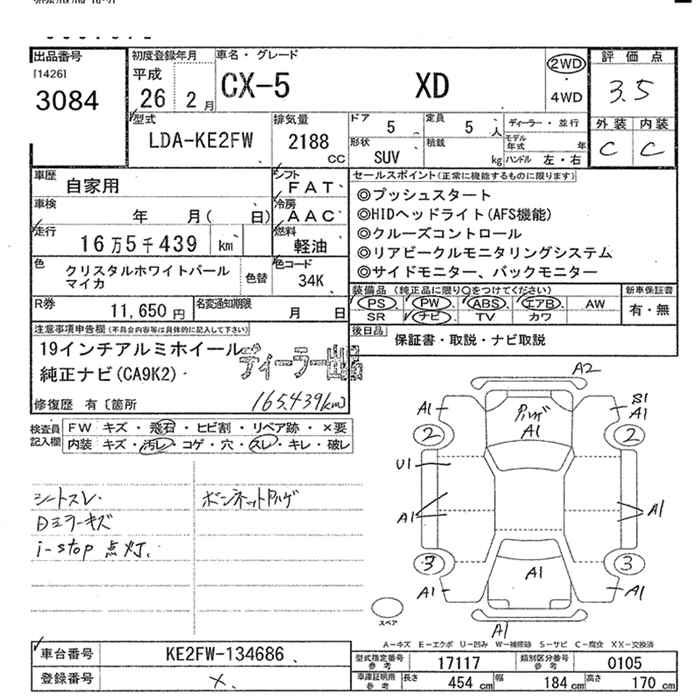 出品番号
[1426]
3084
初度登録年月
平成
26 2月
車名・グレード
CX-5 XD
2WD
・
4WD
評価点
3.5
外装 内装
C C
型式
LDA-KE2FW
排気量
2188
CC
ドア
5
定員
5 人
形状
SUV
積載
kg
ディーラー・並行
モデル年式 年
ハンドル 左・右
車歴
自家用
シフト
FAT
車検
年 月( 日)
冷房
AAC
走行
16万5千439 km
燃料
軽油
色
クリスタルホワイトパール
マイカ
色替
色コード
34K
R券
11,650円
名変通知期限
月 日
セールスポイント(正常に機能するものに限ります)
◎プッシュスタート
◎HIDヘッドライト(AFS機能)
◎クルーズコントロール
◎リアビークルモニタリングシステム
◎サイドモニター、バックモニター
装備品 (純正品に限り○をつけてください)
PS PW ABS エアB AW
SR ナビ TV カワ
新車保証書
有・無
後日品
保証書・取説・ナビ取説
注意事項申告欄(不具合内容等は具体的に記入して下さい)
19インチアルミホイール
純正ナビ(CA9K2)
ディーラー出品
修復歴 有〔箇所
165,439km〕
検査員記入欄
FW キズ・飛石・ヒビ割・リペア跡・×要
内装 キズ・汚レ・コゲ・穴・スレ・キレ・破レ
シートスレ.
Dミラーキズ
i-stop 点灯.
ボンネットハゲ
A2
A1
S1
A1
ハゲ
A1
2
2
U1
A1
A1
3
3
A1
A1
A1
A1
スペア
A-キズ E-エクボ U-凹み W-補修跡 S-サビ C-腐食 XX-交換済
車台番号
KE2FW-134686
登録番号
×.
型式指定番号
参考
17117
類別区分番号
参考
0105
車庫証明用
参考
長さ 454 cm
幅 184 cm
高さ 170 cm